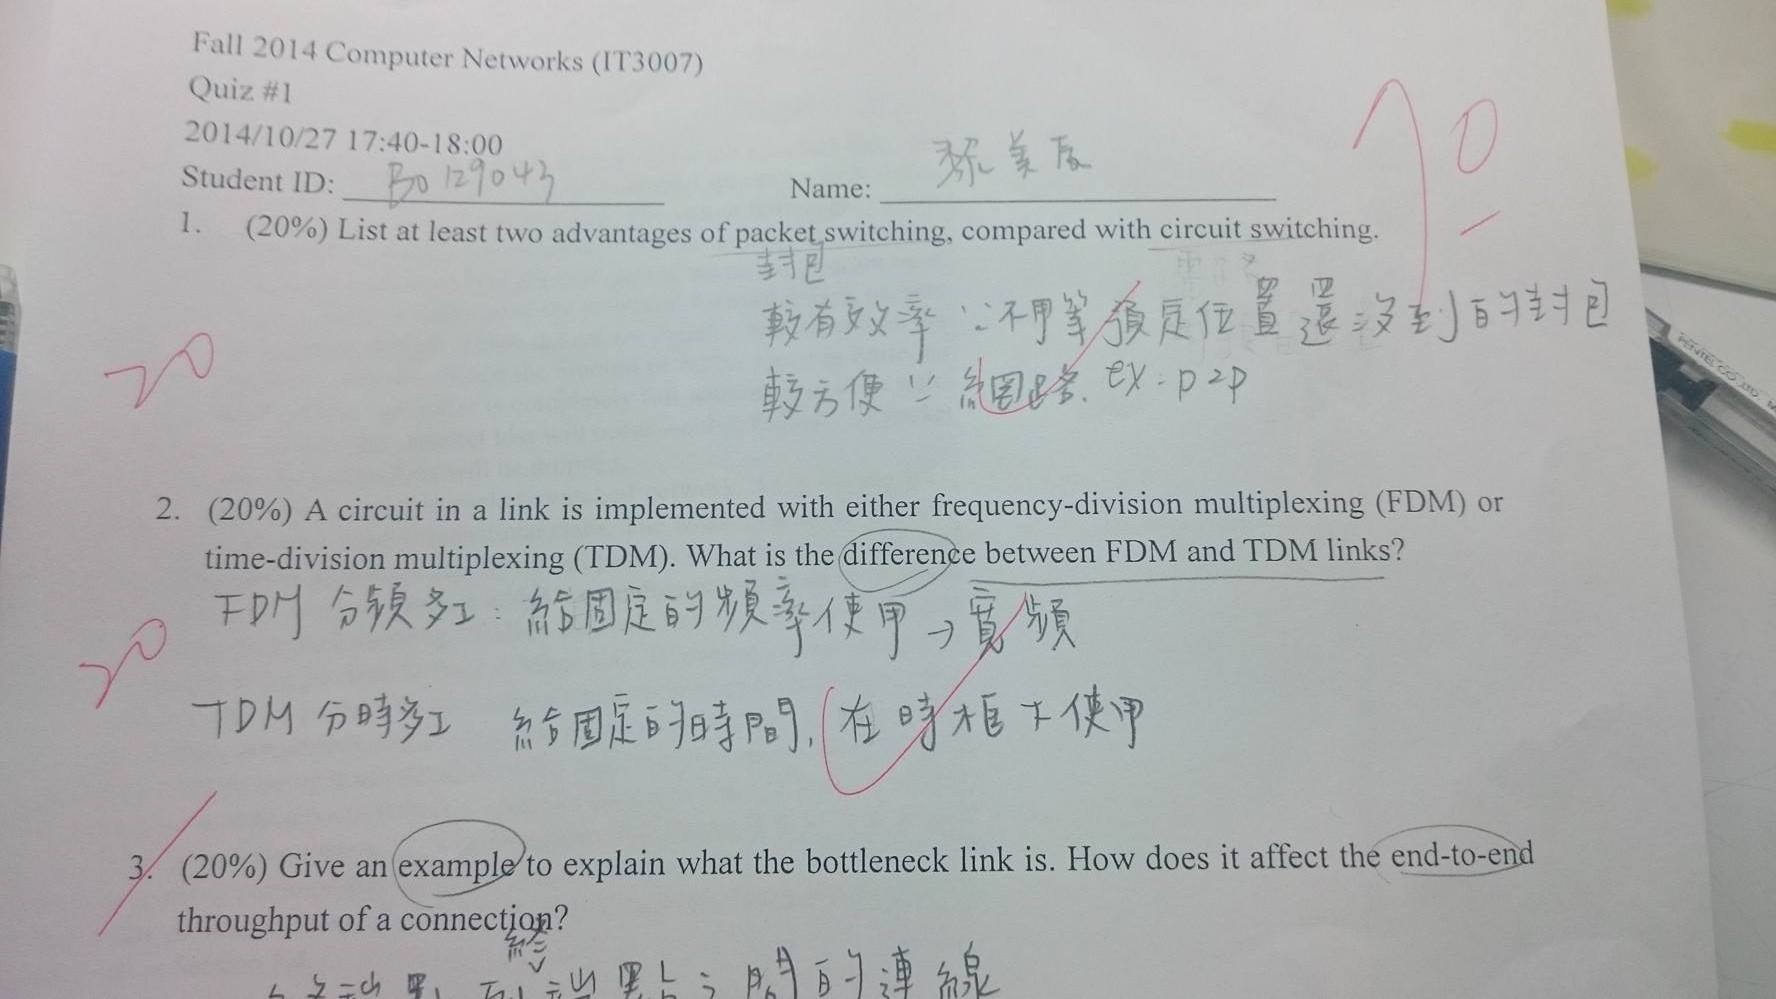 Fall 2014 Computer Networks (IT3007)
Quiz #1
2014/10/27 17:40-18:00
Student ID: B0129043 Name: 張美
1. (20%) List at least two advantages of packet switching, compared with circuit switching.
封包
較有效率 ∵不用等預定位置還沒到的封包
較方便 ∵ 網路. ex: p2p
20
2. (20%) A circuit in a link is implemented with either frequency-division multiplexing (FDM) or
time-division multiplexing (TDM). What is the difference between FDM and TDM links?
FDM 分頻多工: 給固定的頻率使用 → 寬頻
20
TDM 分時多工 給固定的時間, 在時框下使用
3. (20%) Give an example to explain what the bottleneck link is. How does it affect the end-to-end
throughput of a connection?
終
端點之間的連線